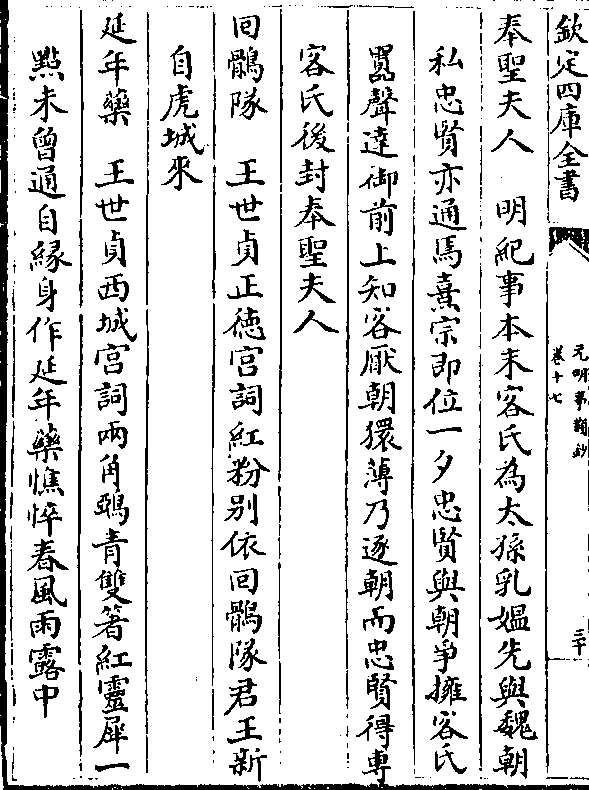 欽定四庫全書
元明事類鈔
卷十七
三十
奉聖夫人　明紀事本末客氏為太孫乳媼先與魏朝
私忠賢亦通焉熹宗即位一夕忠賢與朝爭擁客氏
嚚聲達御前上知客厭朝獧薄乃逐朝而忠賢得專
客氏後封奉聖夫人
回鶻隊　王世貞正德宮詞紅粉別依回鶻隊君王新
自虎城來
延年藥　王世貞西城宮詞兩角鵶青雙箸紅靈犀一
點未曾通自緣身作延年藥憔悴春風雨露中